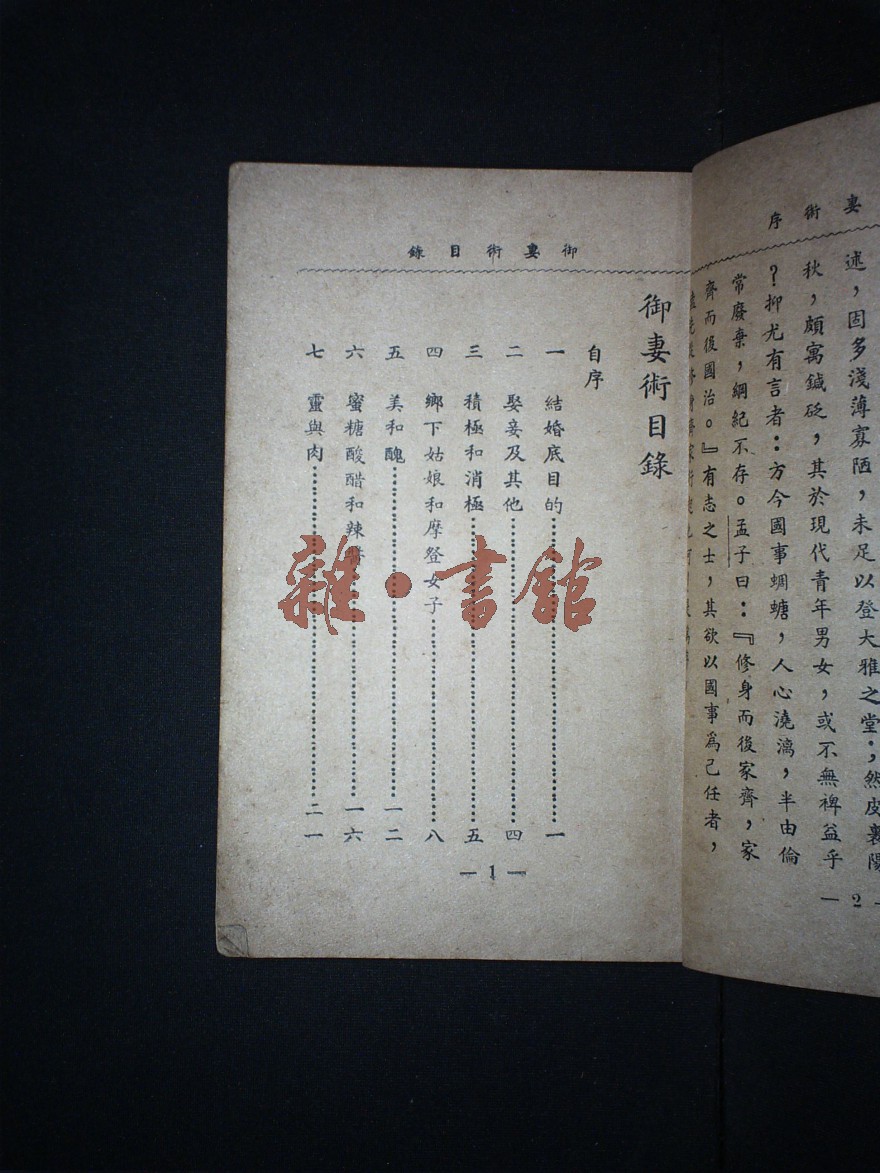 妻術序
述，因多淺薄寡陋，未足以登大雅之堂；然皮裏陽
秋，頗寓鍼砭，其於現代青年男女，或不無裨益乎
？抑尤有言者：方今國事蜩螗，人心澆漓，半由倫
常廢棄，綱紀不存。孟子曰：『修身而後家齊，家
齊而後國治。』有志之士，其欲以國事爲己任者，
— 2
御妻術目錄
御妻術目錄
自序
一　結婚底目的……一
二　娶妾及其他……四
三　積極和消極……五
四　鄉下姑娘和摩登女子……八
五　美和醜……一二
六　蜜糖酸醋和辣醬……一六
七　靈與肉……二一
— 1 —
雜·書館